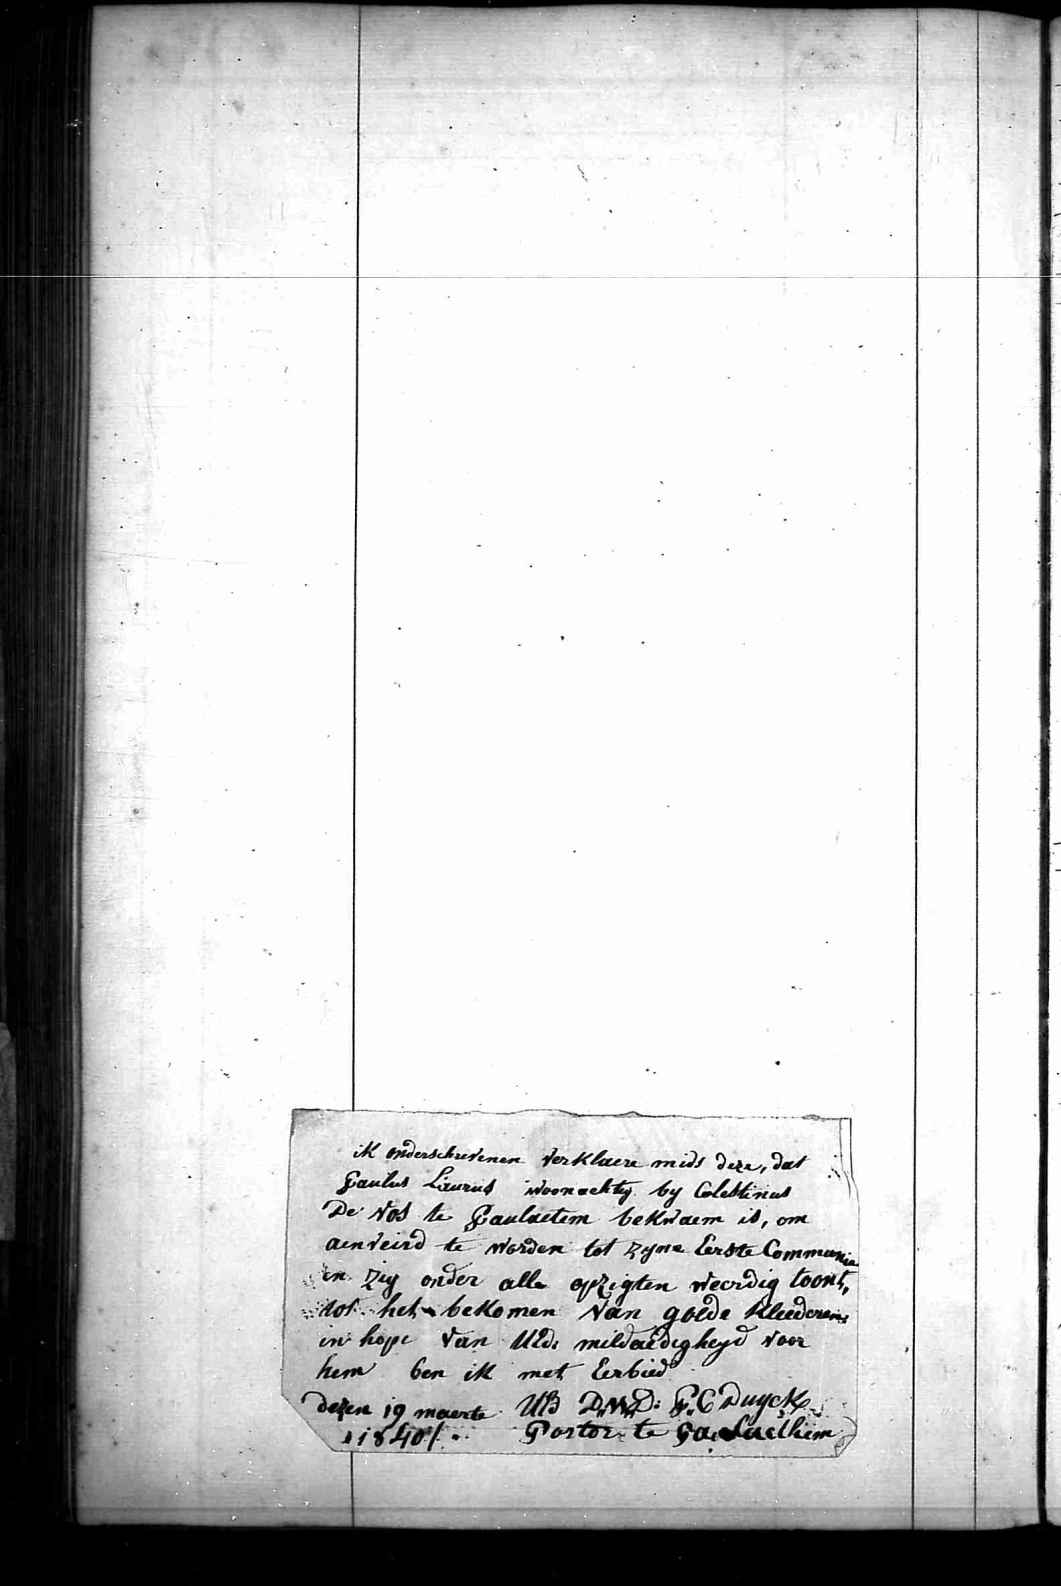 ik onderschrevenen verklaere mids deze, dat
Paulus Laurus woonachtig by Celestinus
De Vos te Paulaetem bekwaem is, om
aenveird te worden tot zyne Eerste Communie
en zig onder alle opzigten weerdig toont,
tot het bekomen van goede kleederen:
in hope van Uld: mildaedigheyd voor
hem ben ik met Eerbied
dezen 19 maerte UB D.W.D: P.C Duyck
1840/. Pastor te Paulaethem